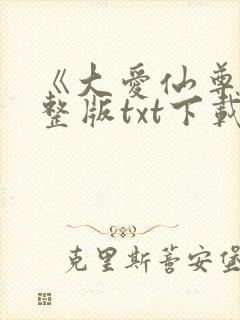 《大爱仙尊
整版txt下载
克里斯蒂安堡